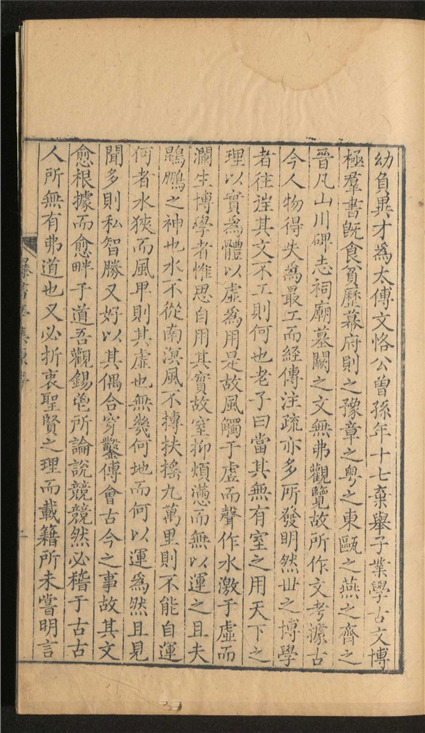 幼負異才為太傅文恪公曾孫年十七棄舉子業學古文博
極羣書既食貧歷幕府則之豫章之粤之東甌之燕之齊之
晉凡山川碑志祠廟墓闕之文無弗觀覽故所作文考據古
今人物得失為最工而經傳注疏亦多所發明然世之博學
者往往其文不工則何也老子曰當其無有室之用天下之
理以實為體以虛為用是故風觸于虛而聲作水激于虛而
瀾生博學者惟思自用其實故窒抑煩懣而無以運之且夫
鵾鵬之神也水不從南溟風不摶扶搖九萬里則不能自運
何者水狹而風卑則其虛也無幾何地而何以運為然且見
聞多則私智勝又好以其偶合穿鑿傅會古今之事故其文
愈根據而愈畔于道吾觀錫鬯所論說兢兢然必稽于古古
人所無有弗道也又必折衷聖賢之理而載籍所未嘗明言
曝書亭集